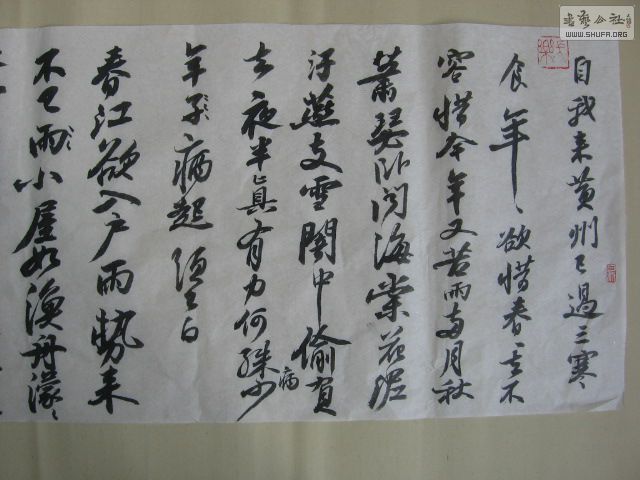 自我来黄州已過三寒
食年〻欲惜春〻去不
容惜今年又苦雨兩月秋
蕭瑟卧闻海棠花泥
汙燕支雪闇中偷負
去夜半真有力何殊少病
年子病起須已白
春江欲入户雨勢来
不已雨小屋如漁舟濛〻
書藝公社
WWW.SHUFA.ORG